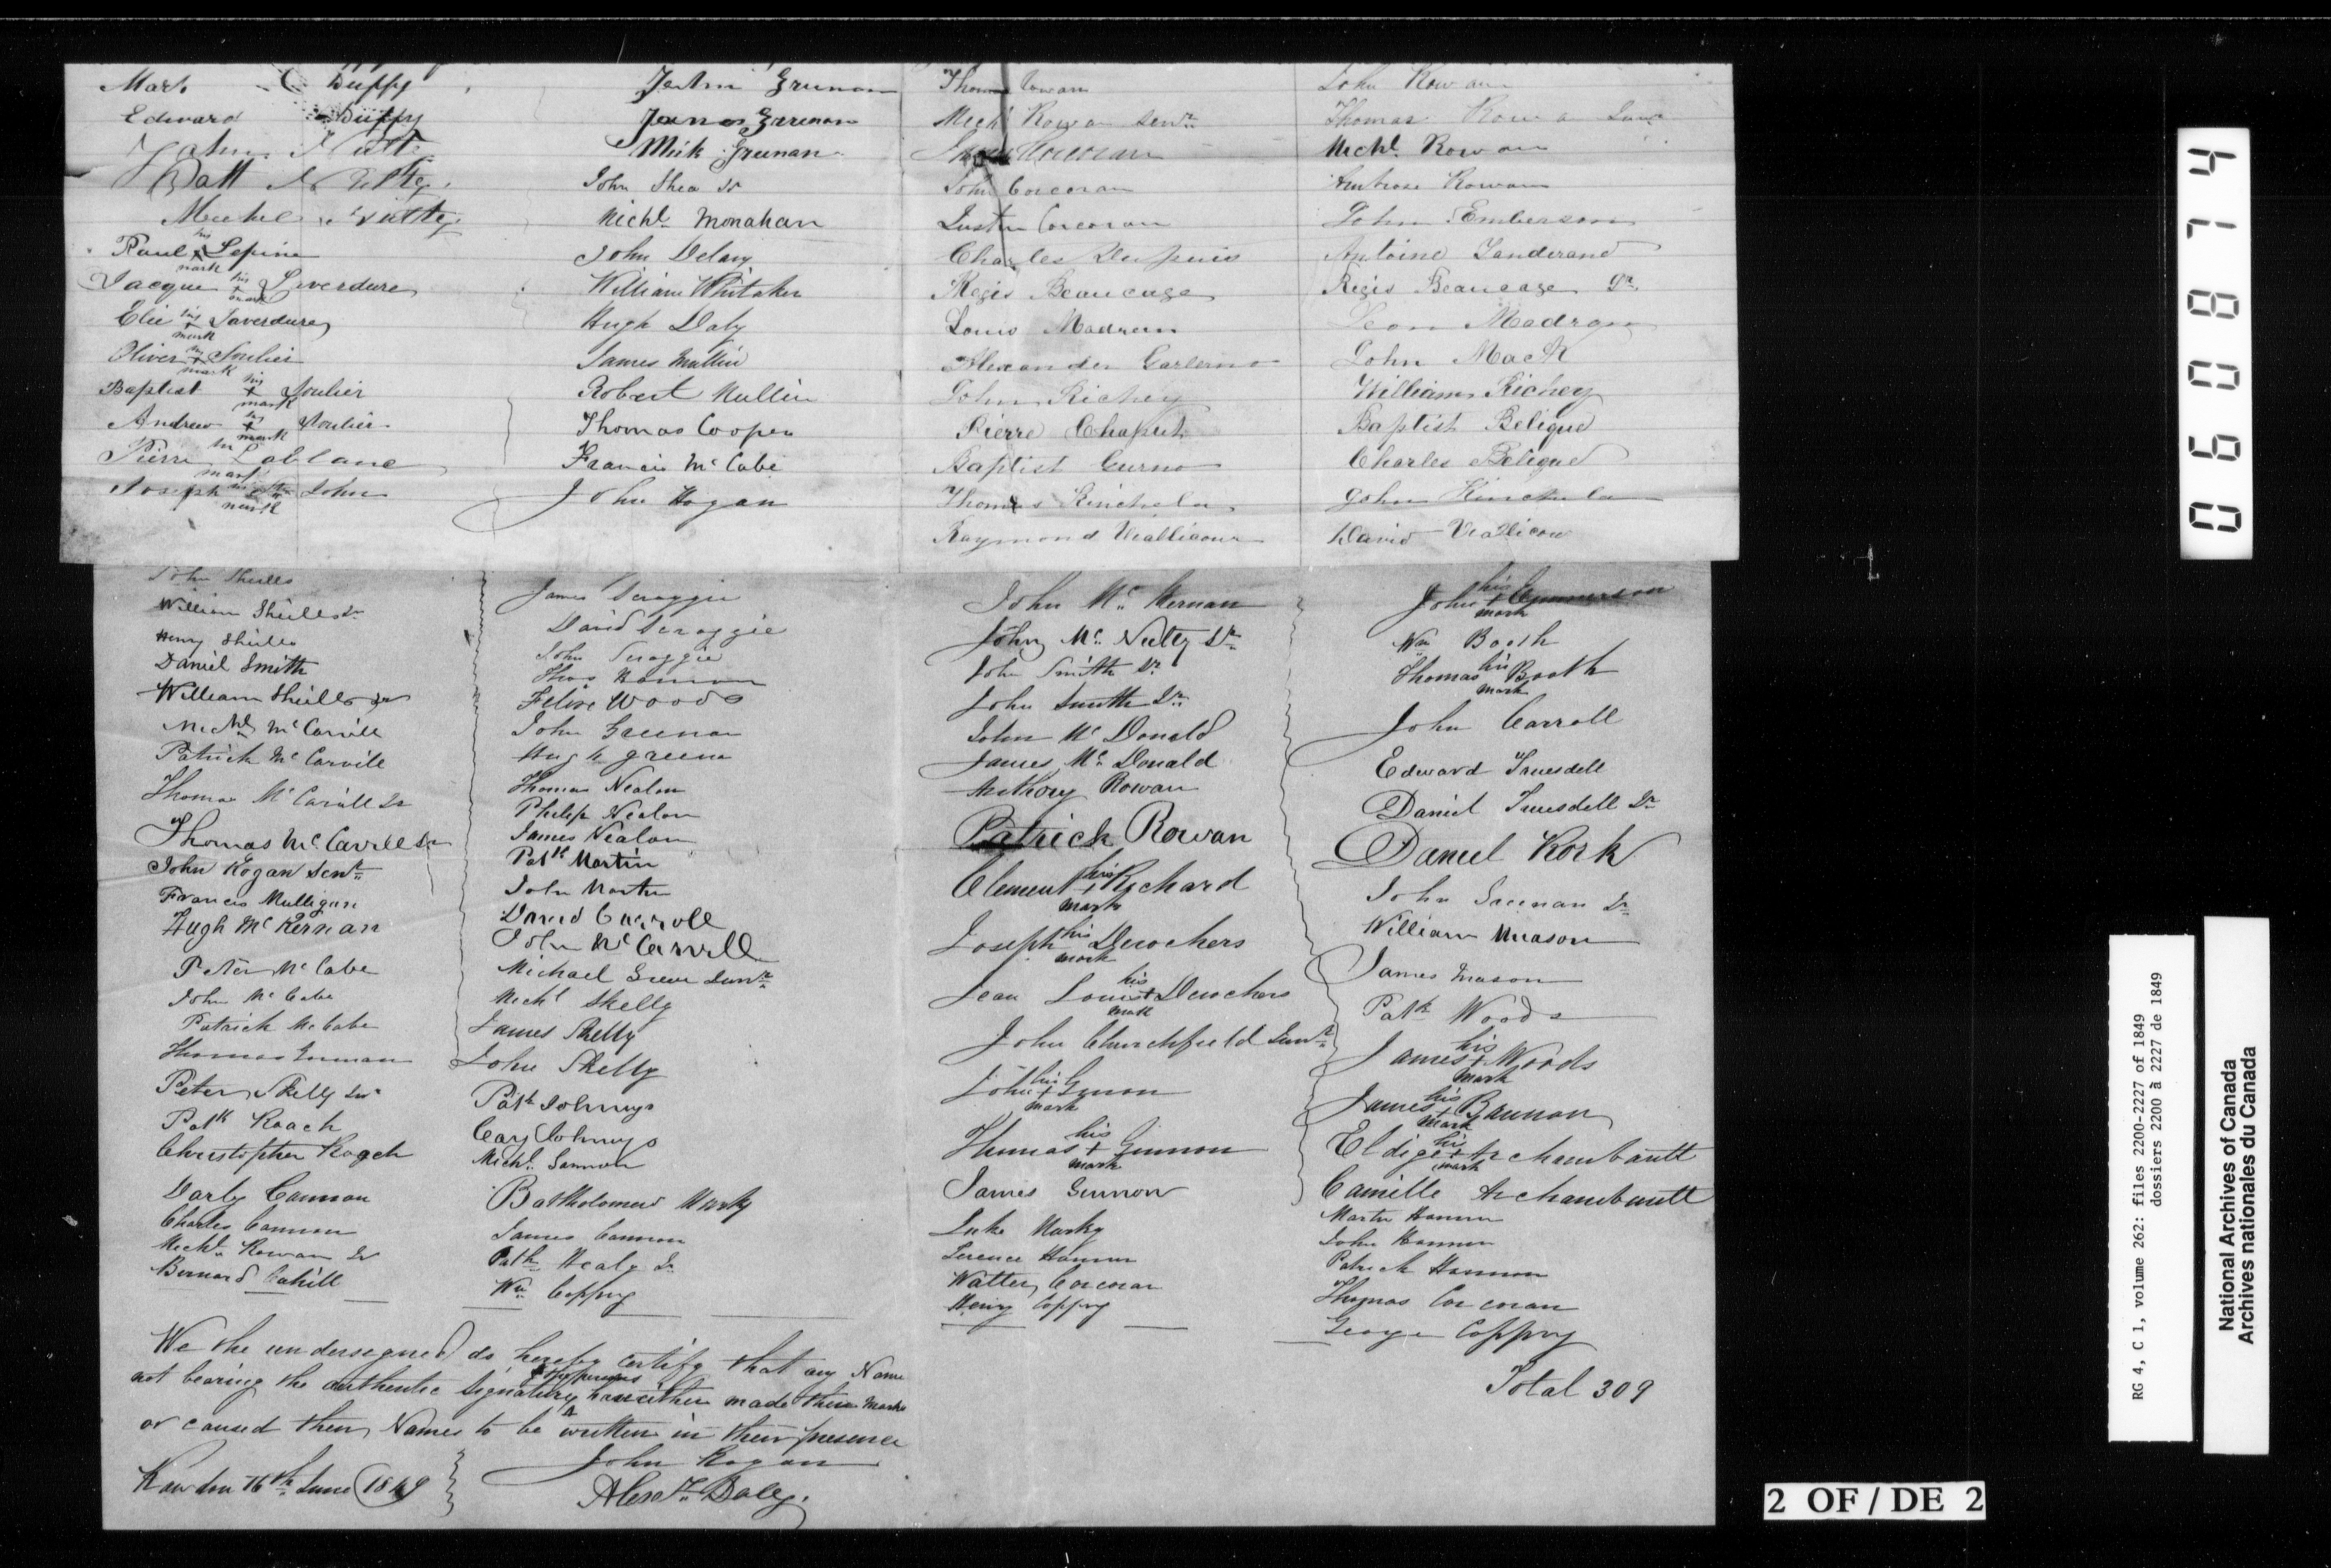 Mark Duffy
Edward Duffy
John
Patt
Paul his + mark Lepine
Jacque his + mark Liverdure
Elie his + mark Laverdure
Oliver his + mark Soulier
Baptist his + mark Soulier
Andrew his + mark Soulier
Pierre his mark Lablanc
Joseph his mark St John
Grunan
James Greenan
Mick Greenan
John Shea Sr
Michl. Monahan
John Delany
William Whitaker
Hugh Daly
James Mullin
Robert Mullin
Thomas Cooper
Francis McCabe
John Hogan
Thomas Cowan
Michl Rowan Senr.
Corcoran
John Corcoran
Justin Corcoran
Charles Dupuis
Regis Beaucage
Louis Madren
Alexander
John Richey
Pierre Chaput
Baptist Gurno
Thomas Kinchela
Raymond Veallicour
John Rowan
Thomas Rowan Junr
Michl. Rowan
Ambrose Rowan
John Emberson
Antoine Landerand
Regis Beaucage Jr.
Leon Madron
John Mack
William Richey
Baptist Beligue
Charles Beligue
John Kinchela
David Veallicou
John Sheills
William Sheills Sr
Henry Sheills
Daniel Smith
William Sheills Jr
Michl McCarvill
Patrick McCarvill
Thomas McCarvill Jr
Thomas McCarvill Sr
John Rogan Senr.
Francis Mulligan
Hugh McKernan
Peter McCabe
John McCabe
Patrick McCabe
Thomas
Peter Skelly Snr
Patk Roach
Christopher Roach
Darby Cannon
Charles Cannon
Michl. Rowan Jr
Bernard Cahill
James Scroggie
David Scroggie
John Scroggie
Thos Hannon
Felix Woods
John Greenan
Hugh Green
Thomas Nealon
Philip Nealon
James Nealon
Patk Martin
John Martin
David Carroll
John McCarvill
Michael Green Junr.
Michl Skelly
James Skelly
John Skelly
Patk
Cary
Michl.
Bartholomew Marky
James Cannon
Patk Healy Jr.
Wm Coppy
John Mc. Kernan
John Mc. Nulty Sr.
John Smith Sr.
John Smith Jr.
John Mc Donald
James Mc. Donald
Anthony Rowan
Patrick Rowan
Clement his + mark Richard
Joseph his mark Derochers
Jean Louis his + mark Derochers
John Churchfield Junr.
John his + mark Ginon
Thomas his + mark Ginnon
James Ginnon
Luke Marky
Terence Hannon
Walter Corcoran
Henry Coppy
John his + mark
Wm Booth
Thomas his mark Booth
John Carroll
Edward Truesdell
Daniel Truesdell Sr
Daniel Kork
John Greenan Sr.
William Meason
James Mason
Patk Woods
James his + mark Woods
James his + mark Brannon
Eldige his + mark Archambault
Camille Archambault
Martin Hannon
John Hannon
Patrick Hannon
Thomas Corcoran
George Coppy
Total 309
We the undersigned do hereby certify that any Name
not bearing the authentic Signature of the persons have either made their Marks
or caused their Names to be written in their presence
John Rogan
Rawdon 16th June 1849
Alexr. Daly.
060874
RG 4, C 1, volume 262: files 2200-2227 of 1849
dossiers 2200 à 2227 de 1849
National Archives of Canada
Archives nationales du Canada
2 OF / DE 2